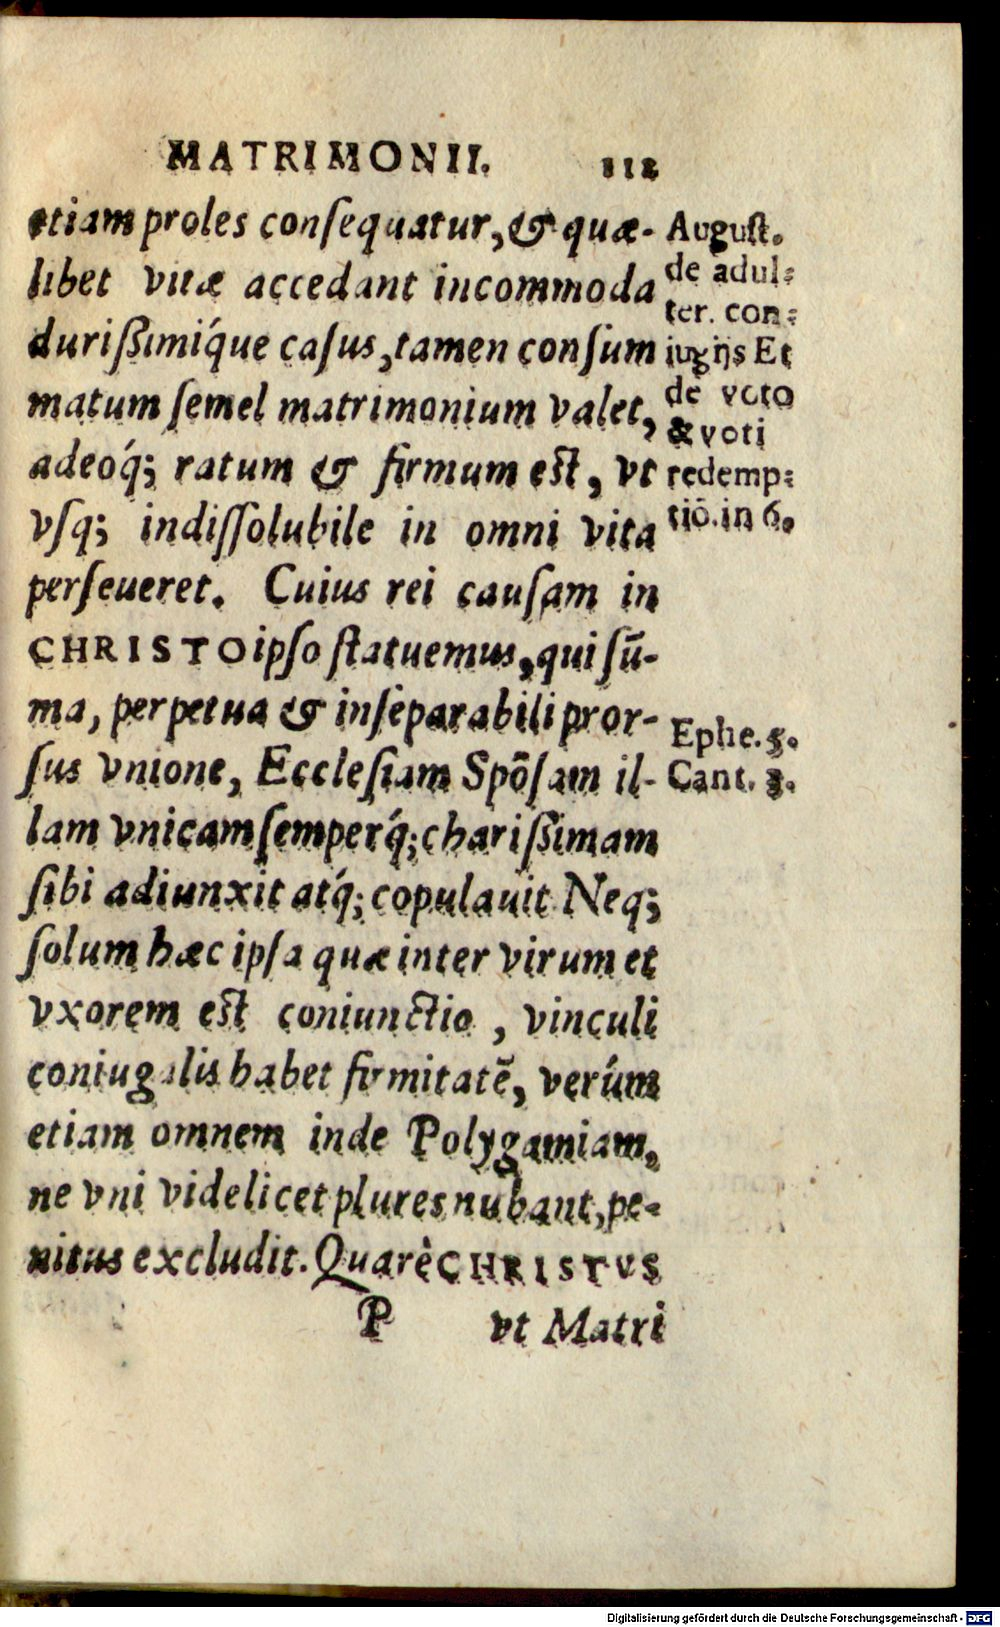 MATRIMONII. 112
etiam proles consequatur, & quæ-
libet vitæ accedant incommoda
durißimíque casus, tamen consum
matum semel matrimonium valet,
adeóq; ratum & firmum est, vt
vsq; indissolubile in omni vita
perseueret. Cuius rei causam in
CHRISTO ipso statuemus, qui sū-
ma, perpetua & inseparabili pror-
sus vnione, Ecclesiam Spōsam il-
lam vnicam semperq́; charißimam
sibi adiunxit atq́; copulauit Neq;
solum hæc ipsa quæ inter virum et
vxorem est coniunctio, vinculi
coniugalis habet firmitatē, verúm
etiam omnem inde Polygamiam,
ne vni videlicet plures nubant, pe-
nitus excludit. Quarè CHRISTVS
P vt Matri
August.
de adul-
ter. con-
iugijs Et
de voto
& voti
redemp-
tiō. in 6.
Ephe. 5.
Cant. 3.
Digitalisierung gefördert durch die Deutsche Forschungsgemeinschaft - DFG